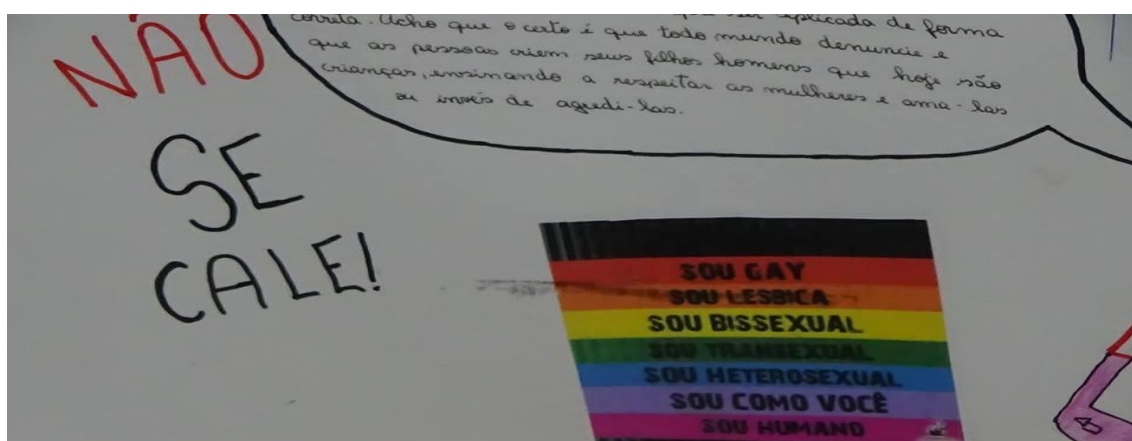 NÃO
SE
CALE!
aplicada de forma
correta. Acho que o certo é que todo mundo denuncie e
que as pessoas criem seus filhos homens que hoje são
crianças, ensinando a respeitar as mulheres e ama-las
ao invés de agredi-las.
SOU GAY
SOU LESBICA
SOU BISSEXUAL
SOU TRANSEXUAL
SOU HETEROSEXUAL
SOU COMO VOCÊ
SOU HUMANO